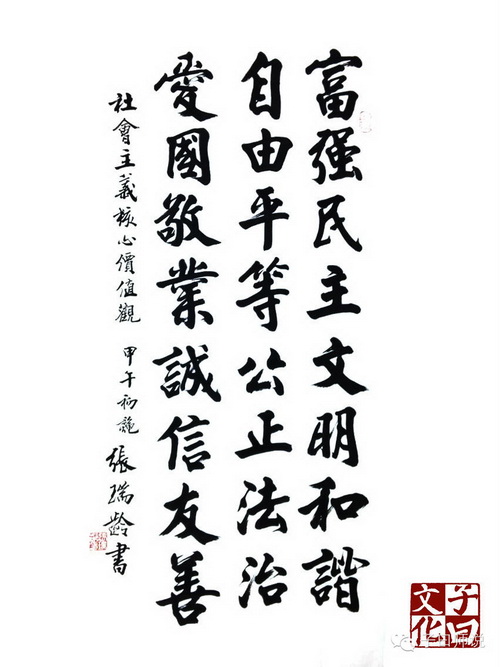 富强民主文明和諧
自由平等公正法治
愛國敬業誠信友善
社會主義核心價值觀 甲午初說 張瑞齡書
子曰文化